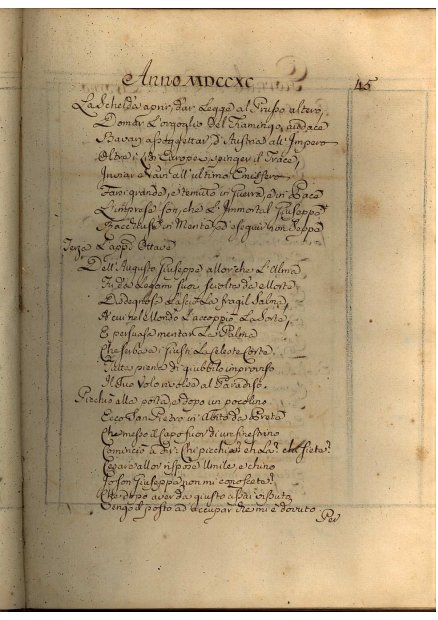 Anno MDCCXC 45
La Schelda aprir, dar Legge al Prusso altero,
Domar L'orgoglio del Fiamingo audace
Bavari assoggettar, d'Austria all'Impero
Oltre l' Europa spinger il Trace,
Inviare all'ultimo Emissero
Farsi grande, e temuto in Guerra, e in Pace
L'imprese son, che L'Immortal Giuseppe
Racchiuse in Mente, ed eseguir non seppe
Terze L'appo Ottave
Dell'Augusto Giuseppe allor che L'Alma
Fu da Legami suoi sciolta da Morte
Disdegnosa Lasciò La fragil Salma,
A cui nel Mondo L'accoppiò La Sorte,
E persuasa mentar La Palma
Che serba a Giusti La Celeste Corte
Tutta piena di giubbilo improviso
Il suo Volo rivolse al Paradiso.
Picchiò alla porta, e dopo un pocolino
Ecco San Pietro in Abito da Prete
Che messo il Capo fuor di un finestrino
Cominciò a dir: Chi picchia? eh La? chi siete?
Cesare allor rispose Umile, e chino
Io son Giuseppe, non mi conoscete?
Che dopo aver da giusto assai vissuto,
Vengo il posto ad occupar che mi è dovuto.
Per